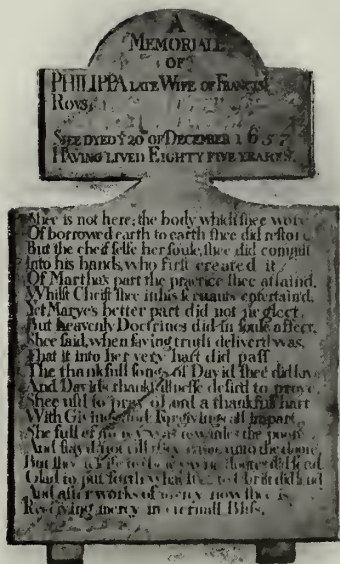 A
MEMORIALL
OF
PHILIPPA LATE WIFE OF FRANCIS
ROVS,
SHE DYED Yᵉ 20 OF DECEMBER 1657
HAVING LIVED EIGHTY FIVE YEARES.
Shee is not here; the body which shee wore
Of borrowed earth to earth shee did restore
But the cheif selfe her soule, shee did commit
Into his hands, who first created it
Of Martha's part the practice shee attaind,
Whilst Christ shee in his servants entertaind,
Yet Marye's better part did not neglect,
But heavenly Doctrines did in soule affect.
Shee said, when saving truth deliverd was,
That it into her very hart did pass
The thankfull songs of David shee did love
And Davids thankfulnesse desird to prove
Shee usd to pray Lord a thankfull hart
With Giving and Forgiving all impart
She full of
And
But
Glad to put forth what
And after works of mercy now shee is
Receiving mercy in eternall Bliss.